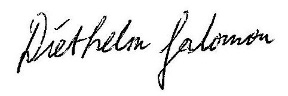 Diethelm Salomon